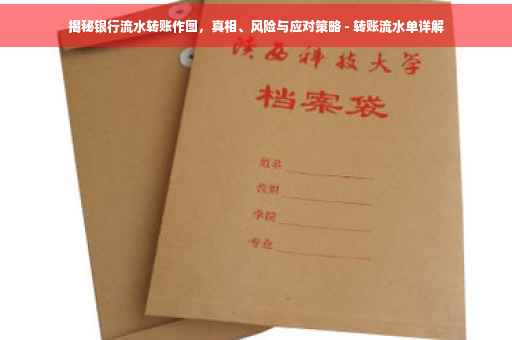 揭秘银行流水转账作图，真相、风险与应对策略 - 转账流水单详解
陕西科技大学
档案袋
姓名
学院
专业